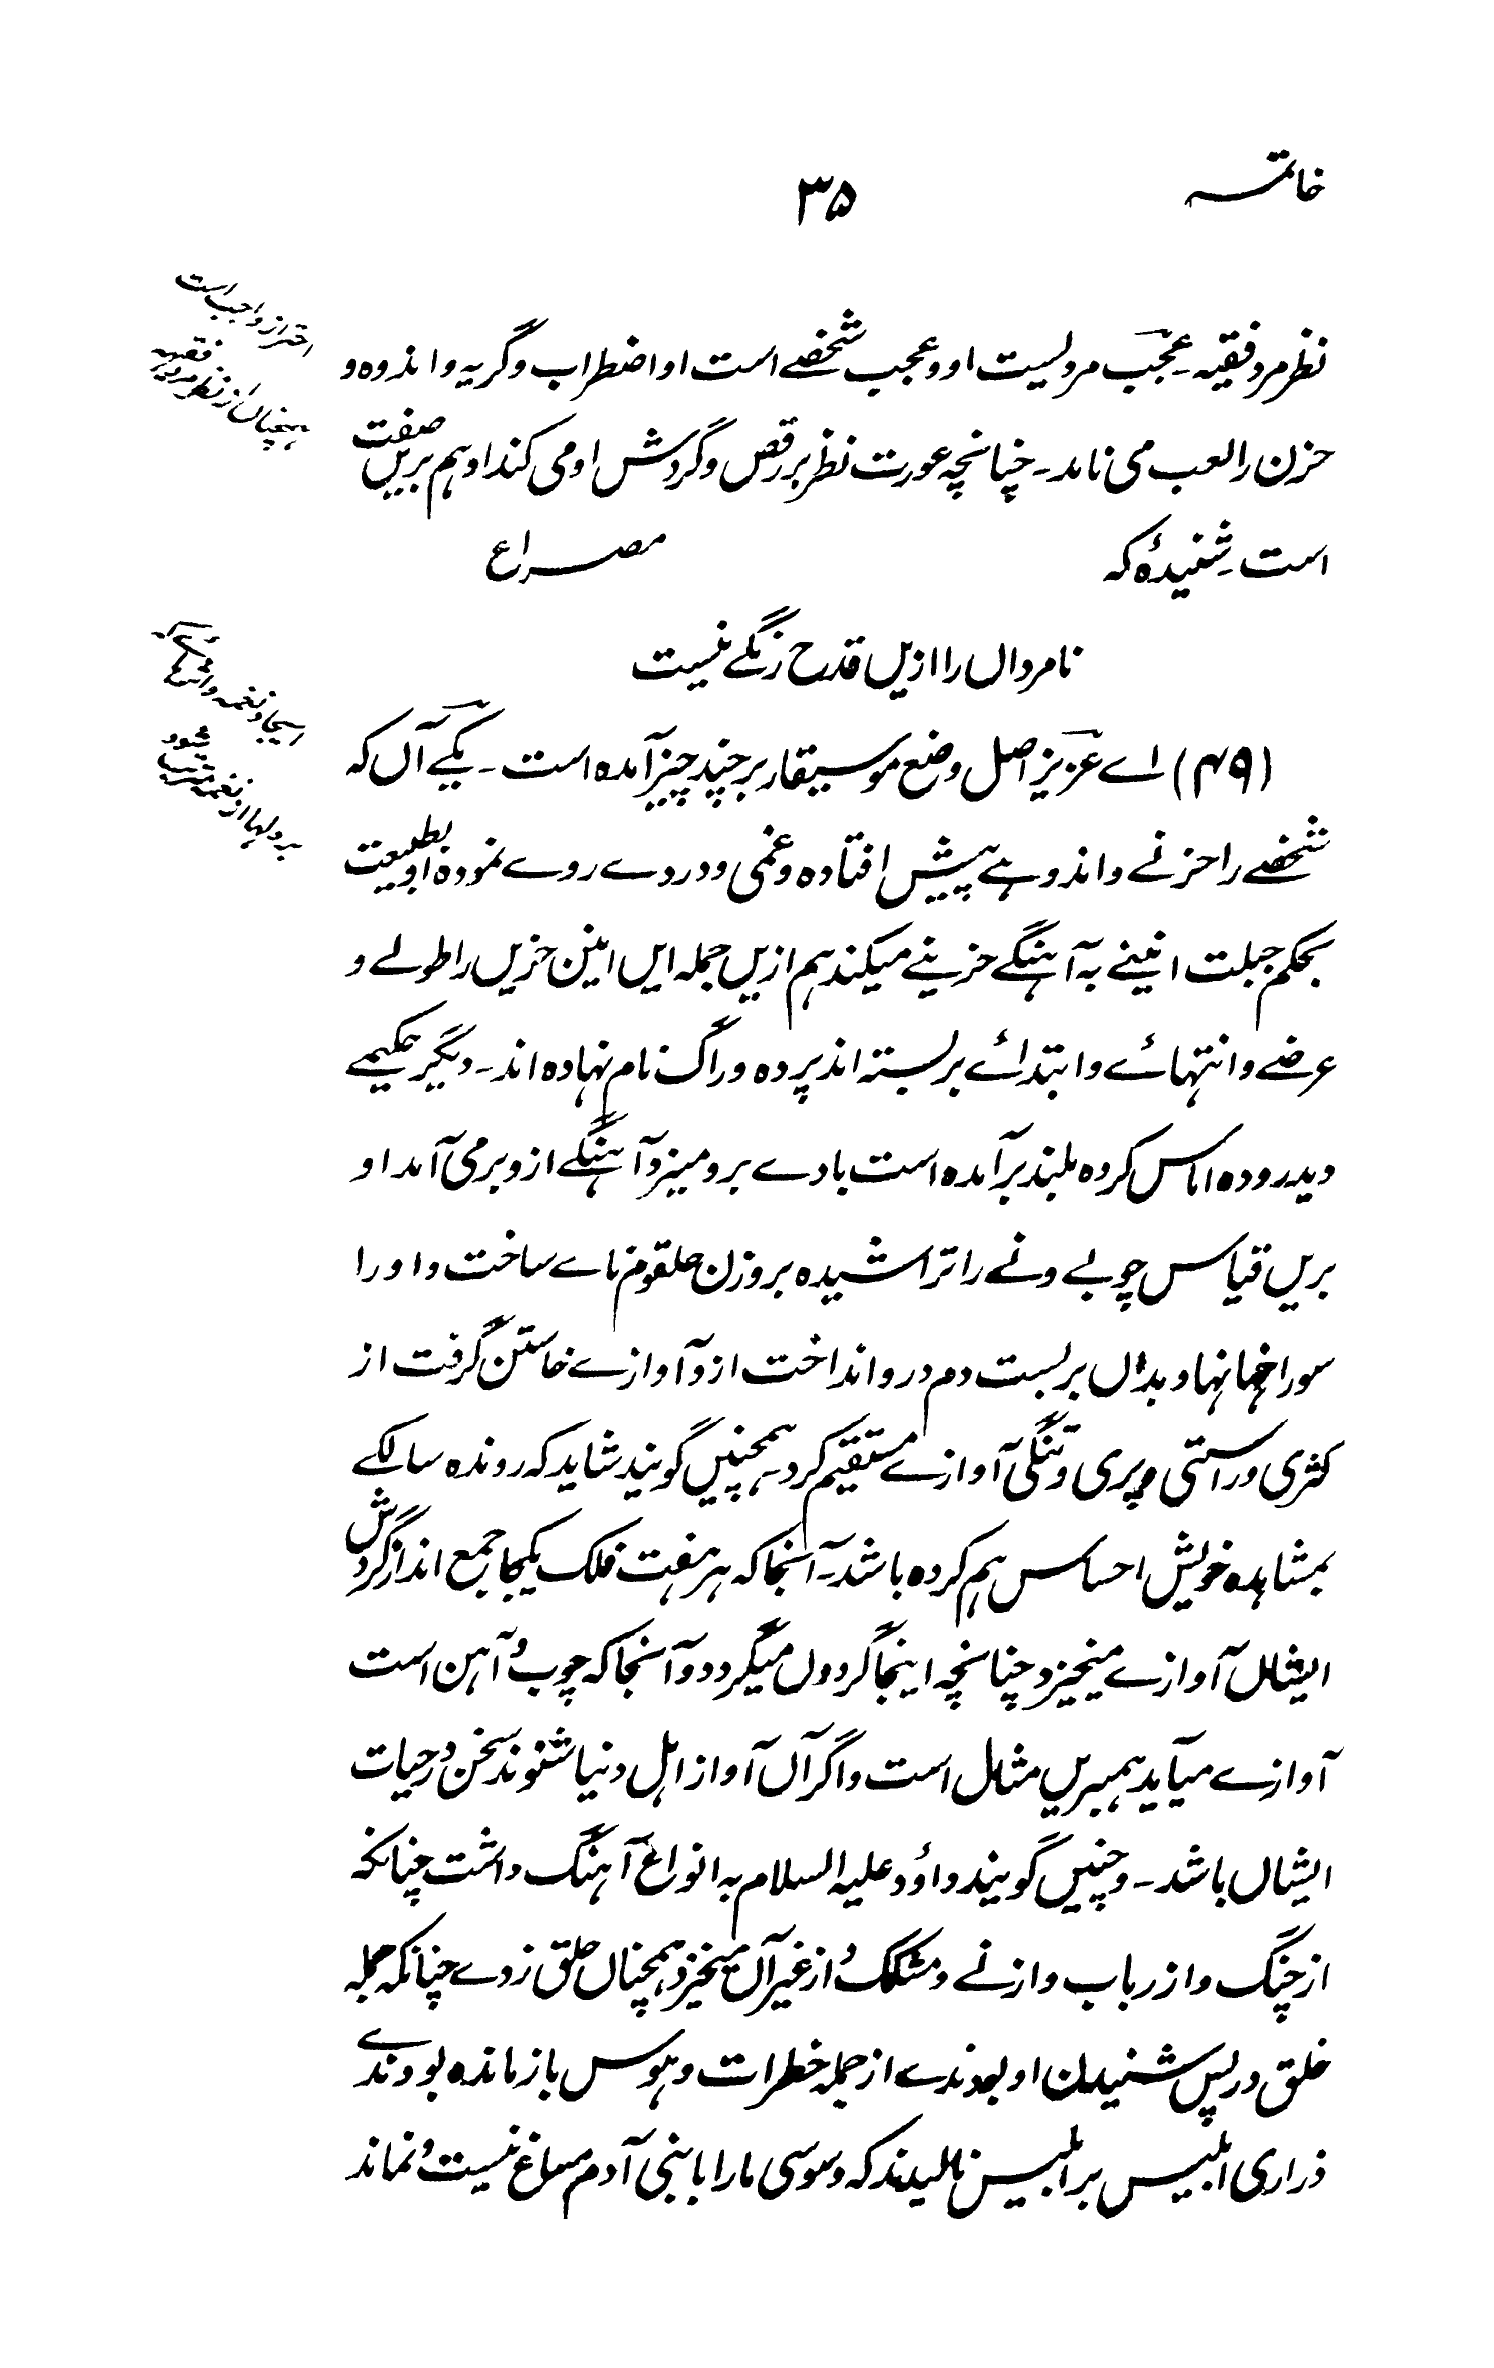 خاتمہ
۳۵
احتراز واجب است
ہمچناں از نظر مرد فقیہ
نظر مرد فقیہ۔ عجب مردیست او و عجب شخصے است او اضطراب و گریہ و اندوہ و
حزن را لعب می نامد۔ چنانچہ عورت نظر بر رقص و گردش او می کند او ہم بریں صفت
است۔ شنیدۂ کہ
مصراع
نامرداں را ازیں قدح رنگے نیست
ایجاد نغمہ و اثرے کہ
بر دلہا از نغمہ مرتب شود
(۴۹) اے عزیز اصل وضع موسیقار بر چند چیز آمدہ است۔ یکے آں کہ
شخصے را حزنے و اندوہے پیش افتادہ و غمی و دردے روے نمودہ او بطبیعت
بحکم جبلت انینے بہ آہنگے حزینے میکند ہم ازیں جملہ ایں انین حزیں را طولے و
عرضے و انتہائے و ابتدائے بربستہ اند پردہ و راگ نام نہادہ اند۔ دیگر حکیمے
دید رودہ اماس کردہ بلند برآمدہ است بادے برو میزد آہنگے ازو برمی آمد او
بریں قیاس چوبے و نے را تراشیدہ بروزن حلقوم نامے ساخت و او را
سوراخہا نہاد بداں بربست دم درو انداخت ازو آوازے خاستن گرفت از
کثری و راستی و پری و تنگی آوازے مستقیم کرد۔ ہمچنیں گویند شاید کہ روندہ سالکے
بمشاہدہ خویش احساس ہم کردہ باشد۔ آنجا کہ ہر ہفت فلک یکجا جمع اند از گردش
ایشاں آوازے میخیزد چنانچہ اینجا گردوں میگردد و آنجا کہ چوب و آہن است
آوازے میآید ہمبریں مثال است و اگر آں آواز اہل دنیا شنوند سخن در حیات
ایشاں باشد۔ و چنیں گویند داؤد علیہ السلام بہ انواع آہنگ داشت چنانکہ
از چنگ و از رباب و از نے و مشکک و از غیر آں میخیزد ہمچناں حلق زدے چنانکہ جملہ
خلق در پس شنیدن او بودندے از جملہ خطرات و ہوس باز ماندہ بودندے
ذراری ابلیس بر ابلیس نالیدند کہ وسوسی ما را با بنی آدم مساغ نیست و نماند